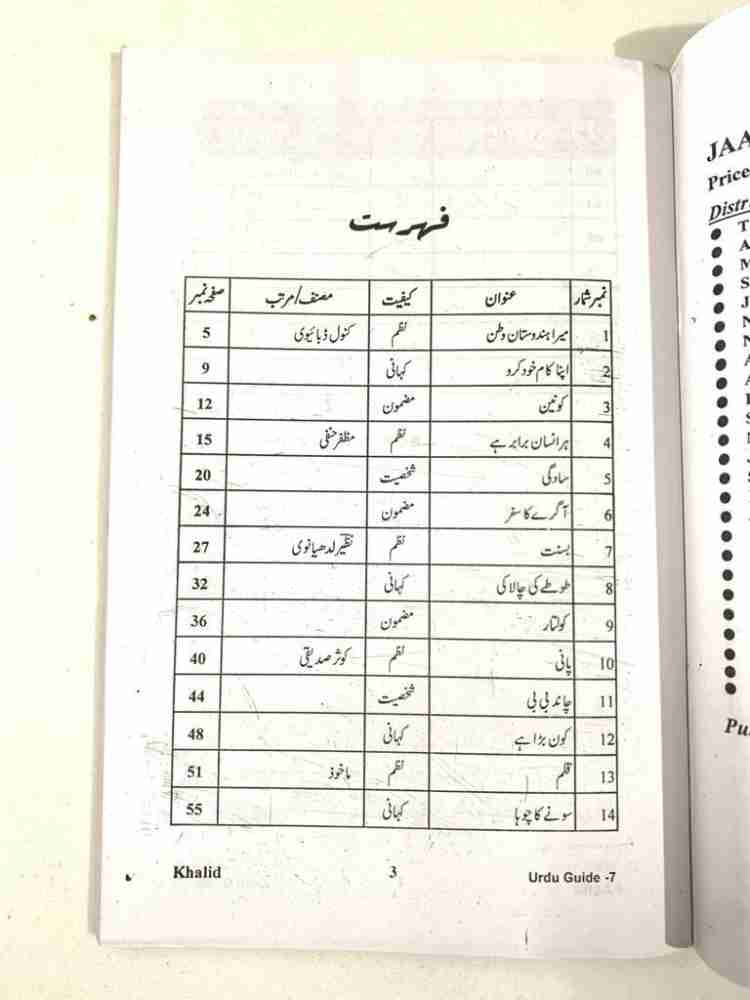 فہرست
نمبر شمار عنوان کیفیت مصنف/مرتب صفحہ نمبر
1 میرا ہندوستان وطن نظم کنول ڈبائیوی 5
2 اپنا کام خود کرو کہانی 9
3 کونین مضمون 12
4 ہر انسان برابر ہے نظم مظفر حنفی 15
5 سادگی شخصیت 20
6 آگرے کا سفر مضمون 24
7 بسنت نظم نظیر لدھیانوی 27
8 طوطے کی چالاکی کہانی 32
9 کولتار مضمون 36
10 پانی نظم کوثر صدیقی 40
11 چاند بی بی شخصیت 44
12 کون بڑا ہے کہانی 48
13 قلم نظم ماخوذ 51
14 سونے کا چوہا کہانی 55
Khalid 3 Urdu Guide -7
JAA
Price
Distr
Pu